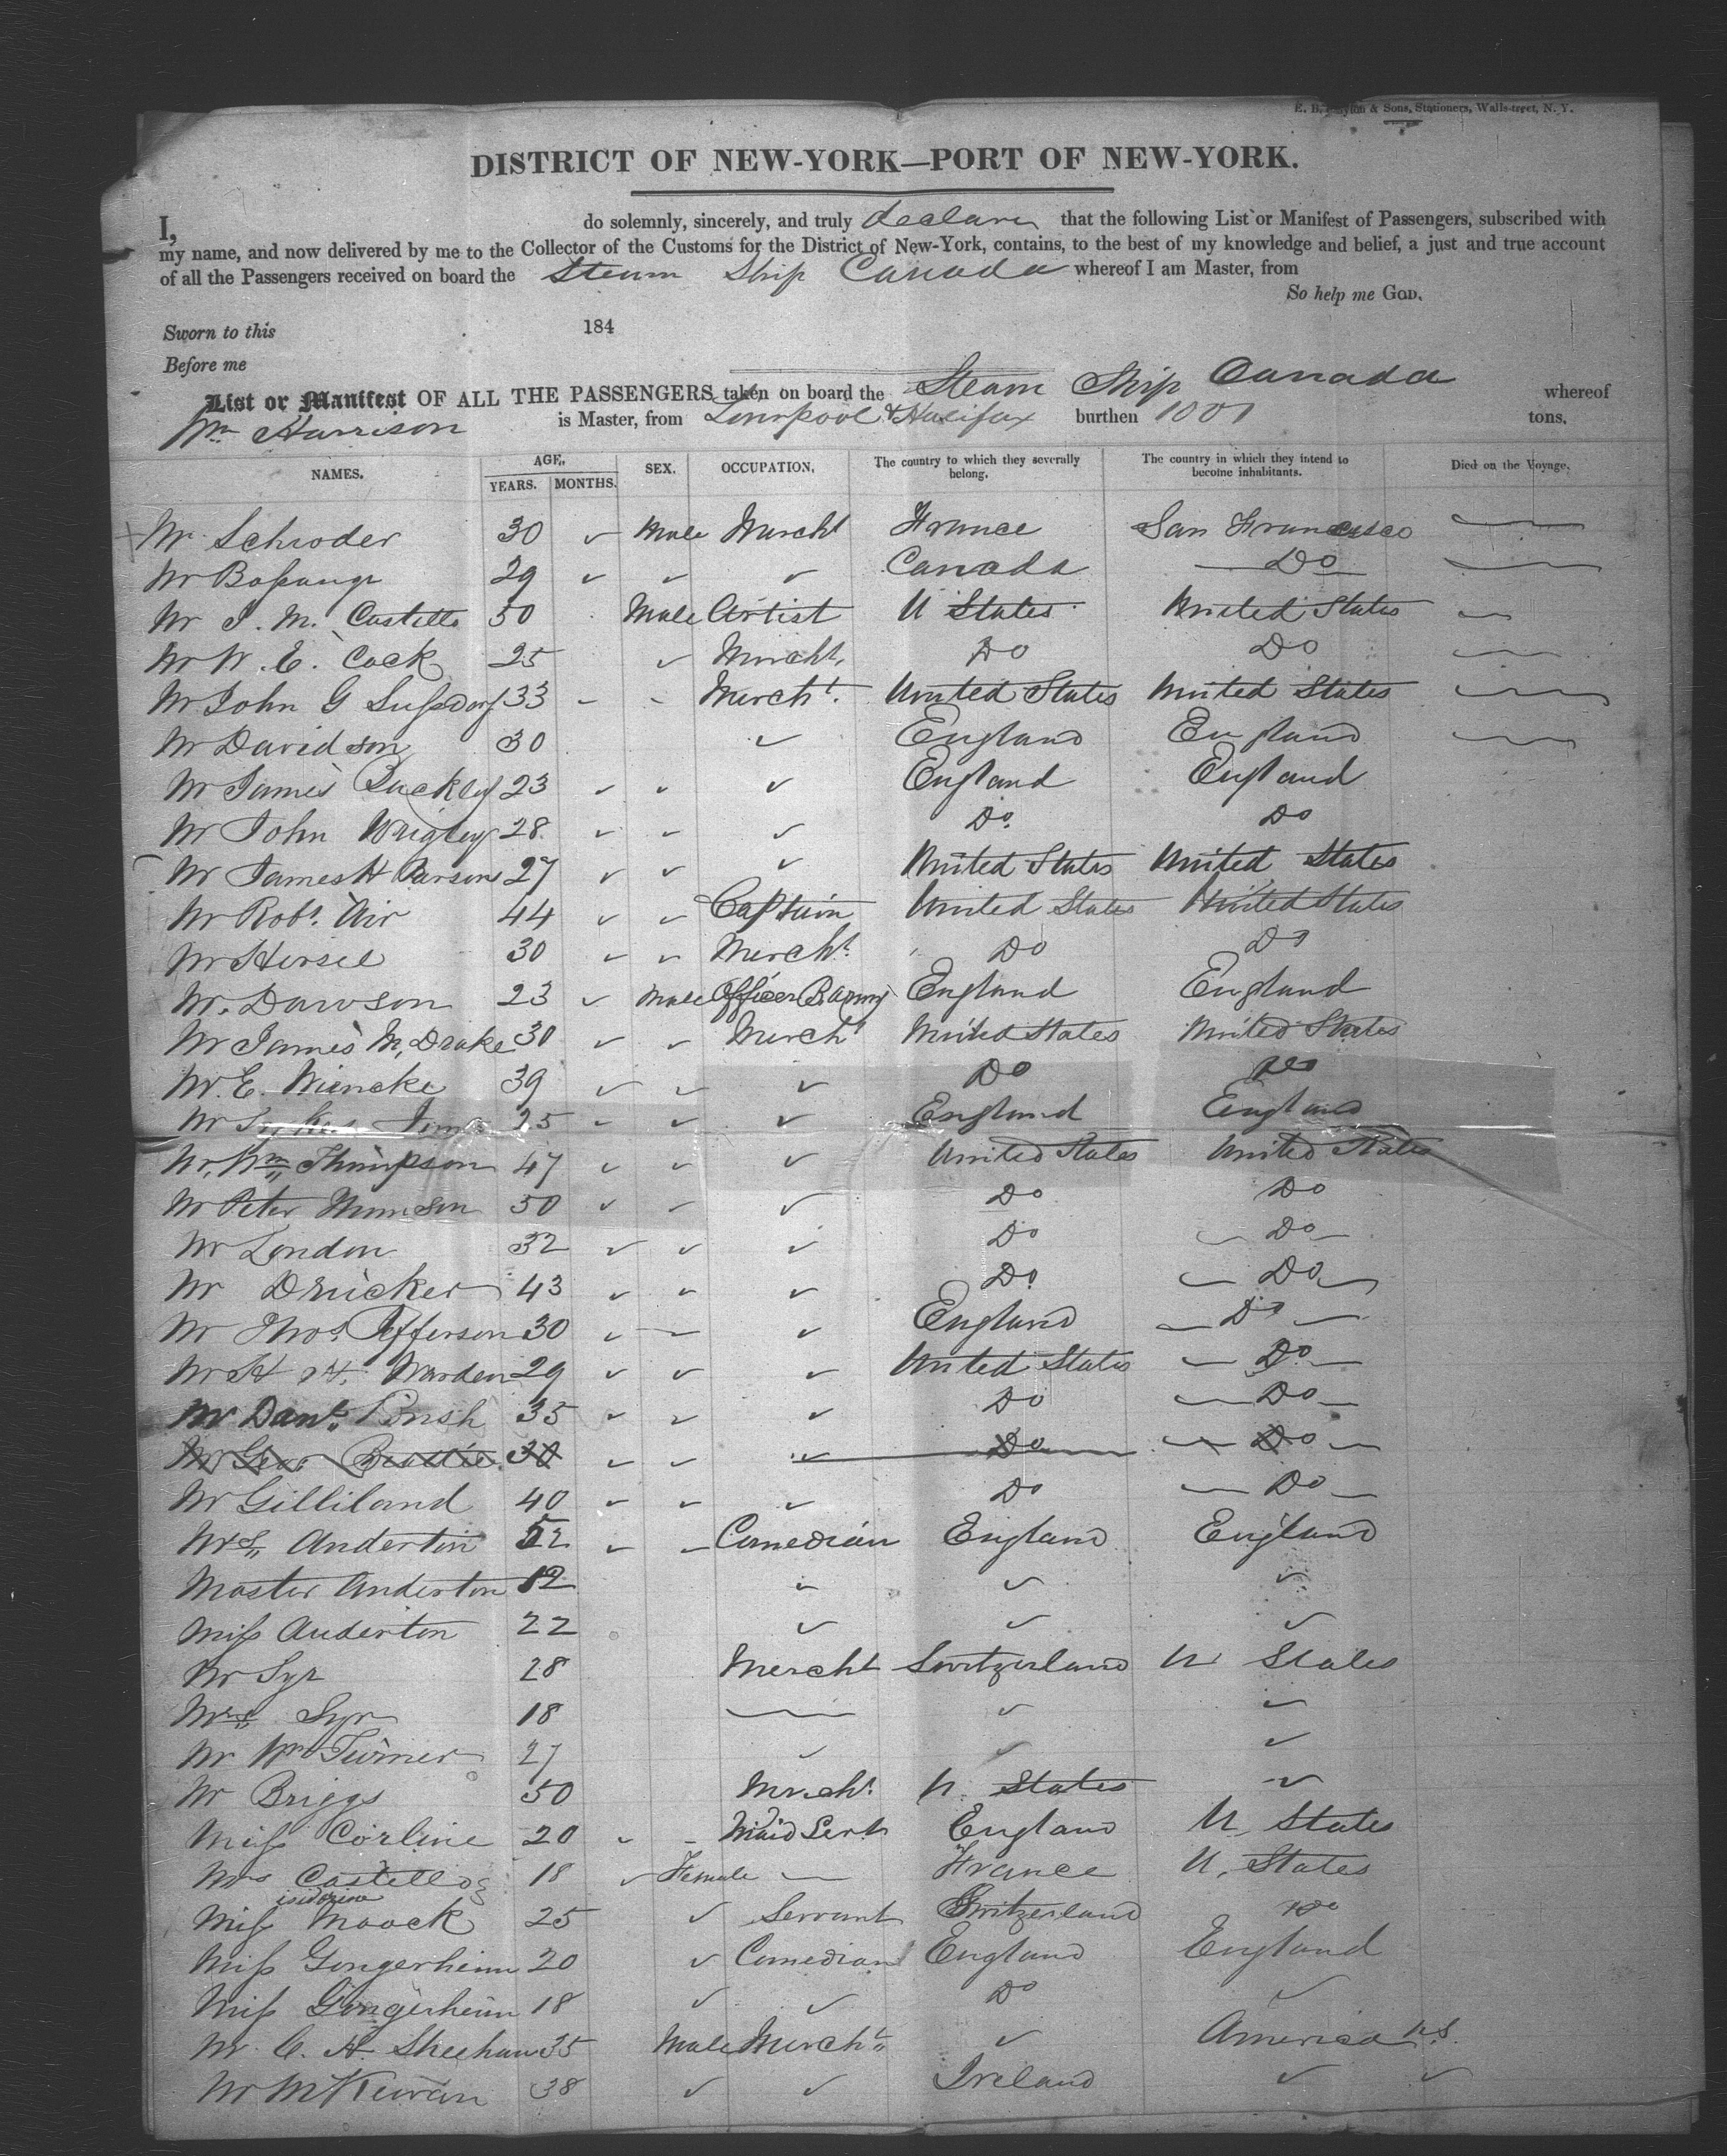 E. B. Clayton & Sons, Stationers, Wall-street, N. Y.
DISTRICT OF NEW-YORK—PORT OF NEW-YORK.
I, do solemnly, sincerely, and truly declare that the following List or Manifest of Passengers, subscribed with
my name, and now delivered by me to the Collector of the Customs for the District of New-York, contains, to the best of my knowledge and belief, a just and true account
of all the Passengers received on board the Steam Ship Canada whereof I am Master, from
So help me GOD.
Sworn to this 184
Before me
List or Manifest OF ALL THE PASSENGERS taken on board the Steam Ship Canada whereof
Wm Harrison is Master, from Liverpool & Halifax burthen 1001 tons.
NAMES. AGE. YEARS. MONTHS. SEX. OCCUPATION. The country to which they severally belong. The country in which they intend to become inhabitants. Died on the Voyage.
Mr Schroder 30 ✓ Male Mercht France San Francisco
Mr Bossange 29 ✓ ✓ ✓ Canada Do
Mr J. M. Castello 50 Male Artist U States United States
Mr W. E. Cock 25 ✓ Mercht Do Do
Mr John G Sussdorf 33 Mercht United States United States
Mr Davidson 30 ✓ England England
Mr James Buckley 23 ✓ ✓ ✓ England England
Mr John Wrigley 28 ✓ ✓ ✓ Do Do
Mr James H Parsons 27 ✓ ✓ ✓ United States United States
Mr Robt Air 44 ✓ ✓ Captain United States United States
Mr Hersee 30 ✓ ✓ Mercht Do Do
Mr. Dawson 23 ✓ Male Officer B. Army England England
Mr James M. Drake 30 ✓ ✓ Mercht United States United States
Mr. E. Wiencke 39 ✓ ✓ ✓ Do Do
Mr Sykes 25 ✓ ✓ ✓ England England
Mr. Wm Thompson 47 ✓ ✓ ✓ United States United States
Mr Peter Munson 50 ✓ ✓ Do Do
Mr London 32 ✓ ✓ ✓ Do Do
Mr Drucker 43 ✓ ✓ ✓ Do Do
Mr Thos Jefferson 30 ✓ ✓ England Do
Mr H H. Warden 29 ✓ ✓ ✓ United States Do
Mr Danl Parish 35 ✓ ✓ ✓ Do Do
Mr Geo Beattie 30 ✓ ✓ ✓ Do Do
Mr Gilliland 40 ✓ ✓ ✓ Do Do
Mrs Anderton 52 ✓ Comedian England England
Master Anderton 12 ✓ ✓ ✓
Miss Anderton 22 ✓ ✓ ✓
Mr Syz 28 Mercht Switzerland U States
Mrs Syz 18 ✓ ✓
Mr Wm Turner 27 ✓ ✓ ✓
Mr Briggs 50 Mercht U. States ✓
Miss Corline 20 ✓ Maid Sert England U. States
Mrs Castello 18 ✓ Female France U. States
Miss isidorine Moock 25 ✓ Servant Switzerland Do
Miss Gongerheim 20 ✓ Comedian England England
Miss Gongerheim 18 ✓ ✓ Do ✓
Mr. C. H. Sheehan 35 Male Mercht ✓ America U.S.
Mr McKewan 38 ✓ ✓ Ireland ✓ ✓